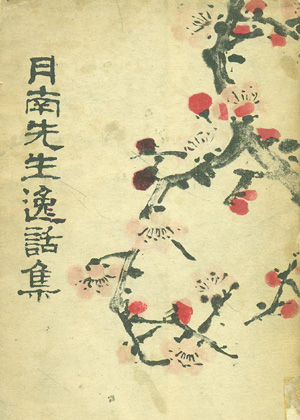 月南先生逸話集